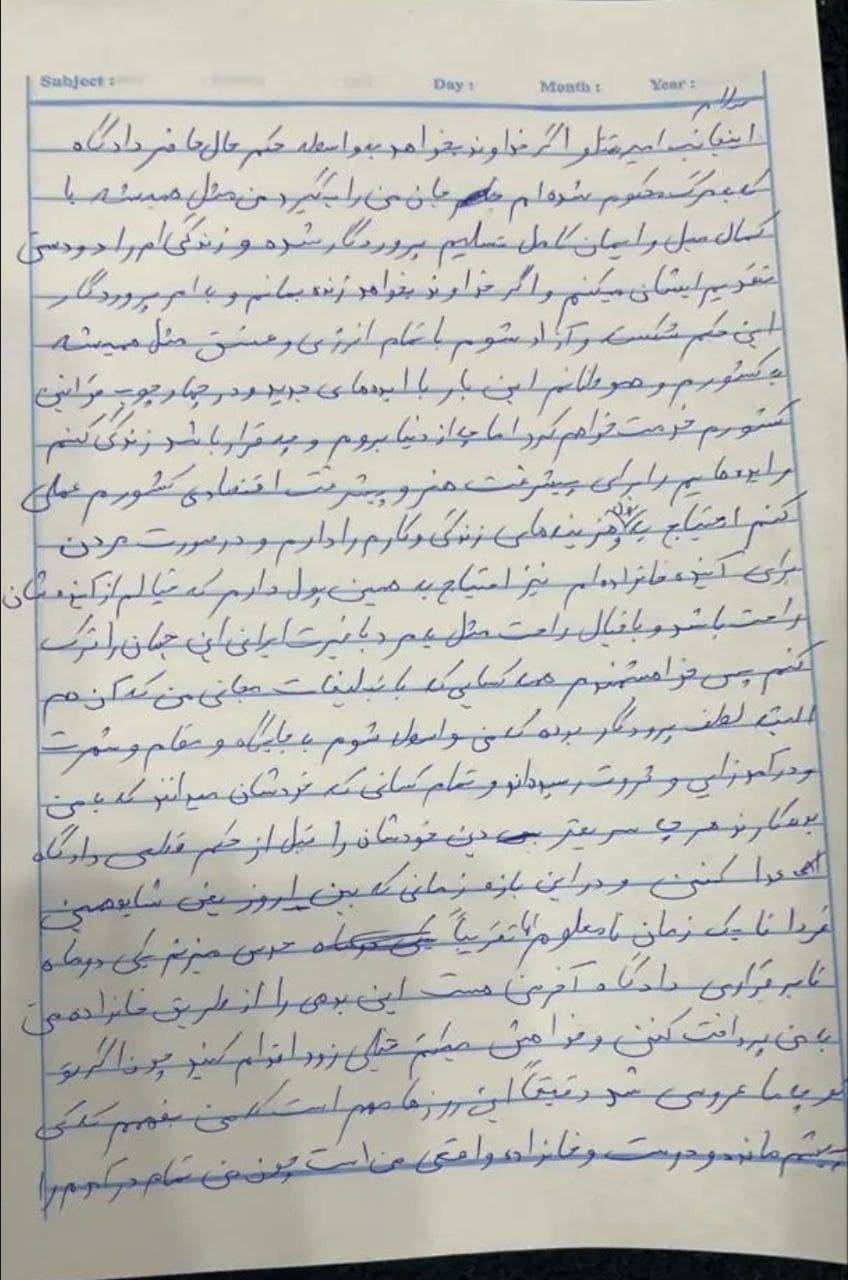 Subject :
Day :
Month :
Year :
سلام
اینجانب امیر اگر خداوند بخواهد بواسطه حکم حال حاضر دادگاه
که به مرگ محکوم شده‌ام جان من را بگیرد من مثل همیشه با
کمال میل و ایمان کامل تسلیم پروردگار شده و زندگی‌ام را دو دستی
تقدیم ایشان میکنم و اگر خداوند بخواهد زنده بمانم و با امر پروردگار
این حکم شکست و آزاد شوم با تمام انرژی و عشق مثل همیشه
به کشورم و هموطنانم این بار با ایده‌های جدید و در چهارچوب قوانین
کشورم خدمت خواهم کرد اما چه از دنیا بروم و چه قرار باشد زندگی کنم
و ایده‌هایم را برای پیشرفت هنر و پیشرفت اقتصادی کشورم عملی
کنم احتیاج به پول و هزینه‌های زندگی و کارم را دارم و در صورت مردن
برای آینده خانواده‌ام نیز احتیاج به همین پول دارم که خیالم از آینده‌شان
راحت باشد و با خیال راحت مثل یه مرد با غیرت ایرانی این جهان را ترک
کنم پس خواهشمندم همه کسایی که با تبلیغات مجانی من که آن هم
البته لطف پروردگار بوده که من واسطه شوم به جایگاه و مقام و شهرت
و درآمدزایی و ثروت رسیدند و تمام کسانی که خودشان میدانند که به من
بدهکارند هر چه سریعتر دین خودشان را قبل از حکم قطعی دادگاه
ادا کنن و در این بازه زمانی که بین امروز یعنی شاید همین
فردا تا یک زمان نامعلوم اما تقریباً حدس میزنم یکی دو ماه
تا برقراری دادگاه آخر من هست این بدهی را از طریق خانواده من
به من پرداخت کنن و خواهش میکنم خیلی زود اقدام کنید چون اگر تو
کوچه ما عروسی شد دقیقاً این روزها مهم است که من بفهمم که کی
پیشم مانده و دوست و خانواده واقعی من است چون من تمام درآمدم را